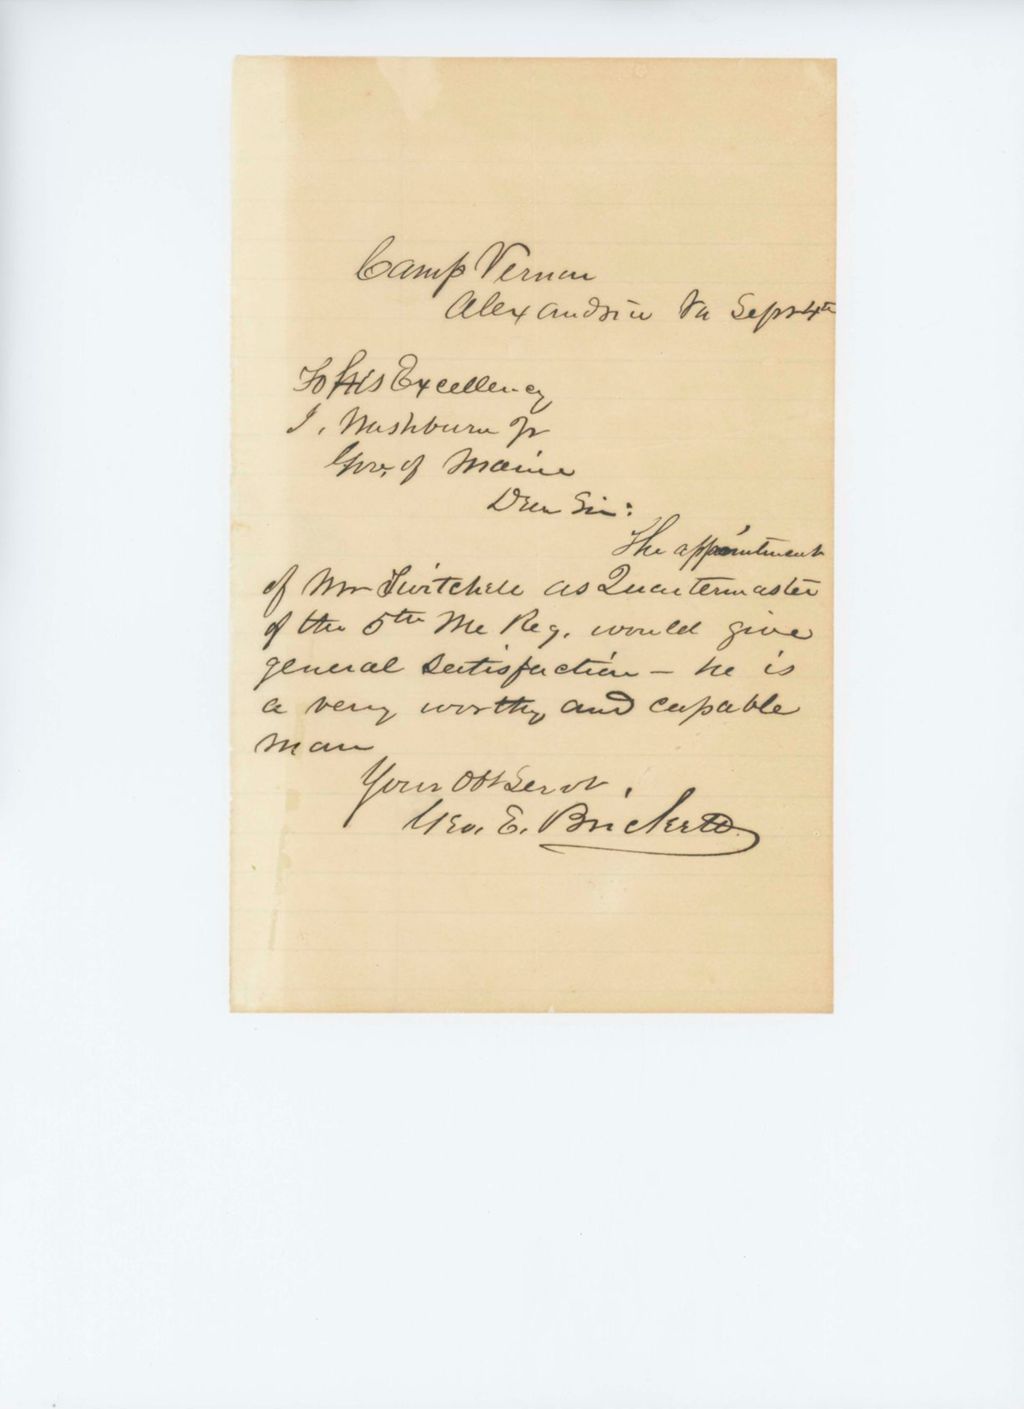 Camp Vernon
Alexandria Va Sept 4th
To His Excellency
I. Washburn Jr
Gov. of Maine
Dear Sir:
The appointment
of Mr Twitchell as Quartermaster
of the 5th Me Reg. would give
general satisfaction - he is
a very worthy and capable
man
Your Obt Servt,
Geo. E. Brickett